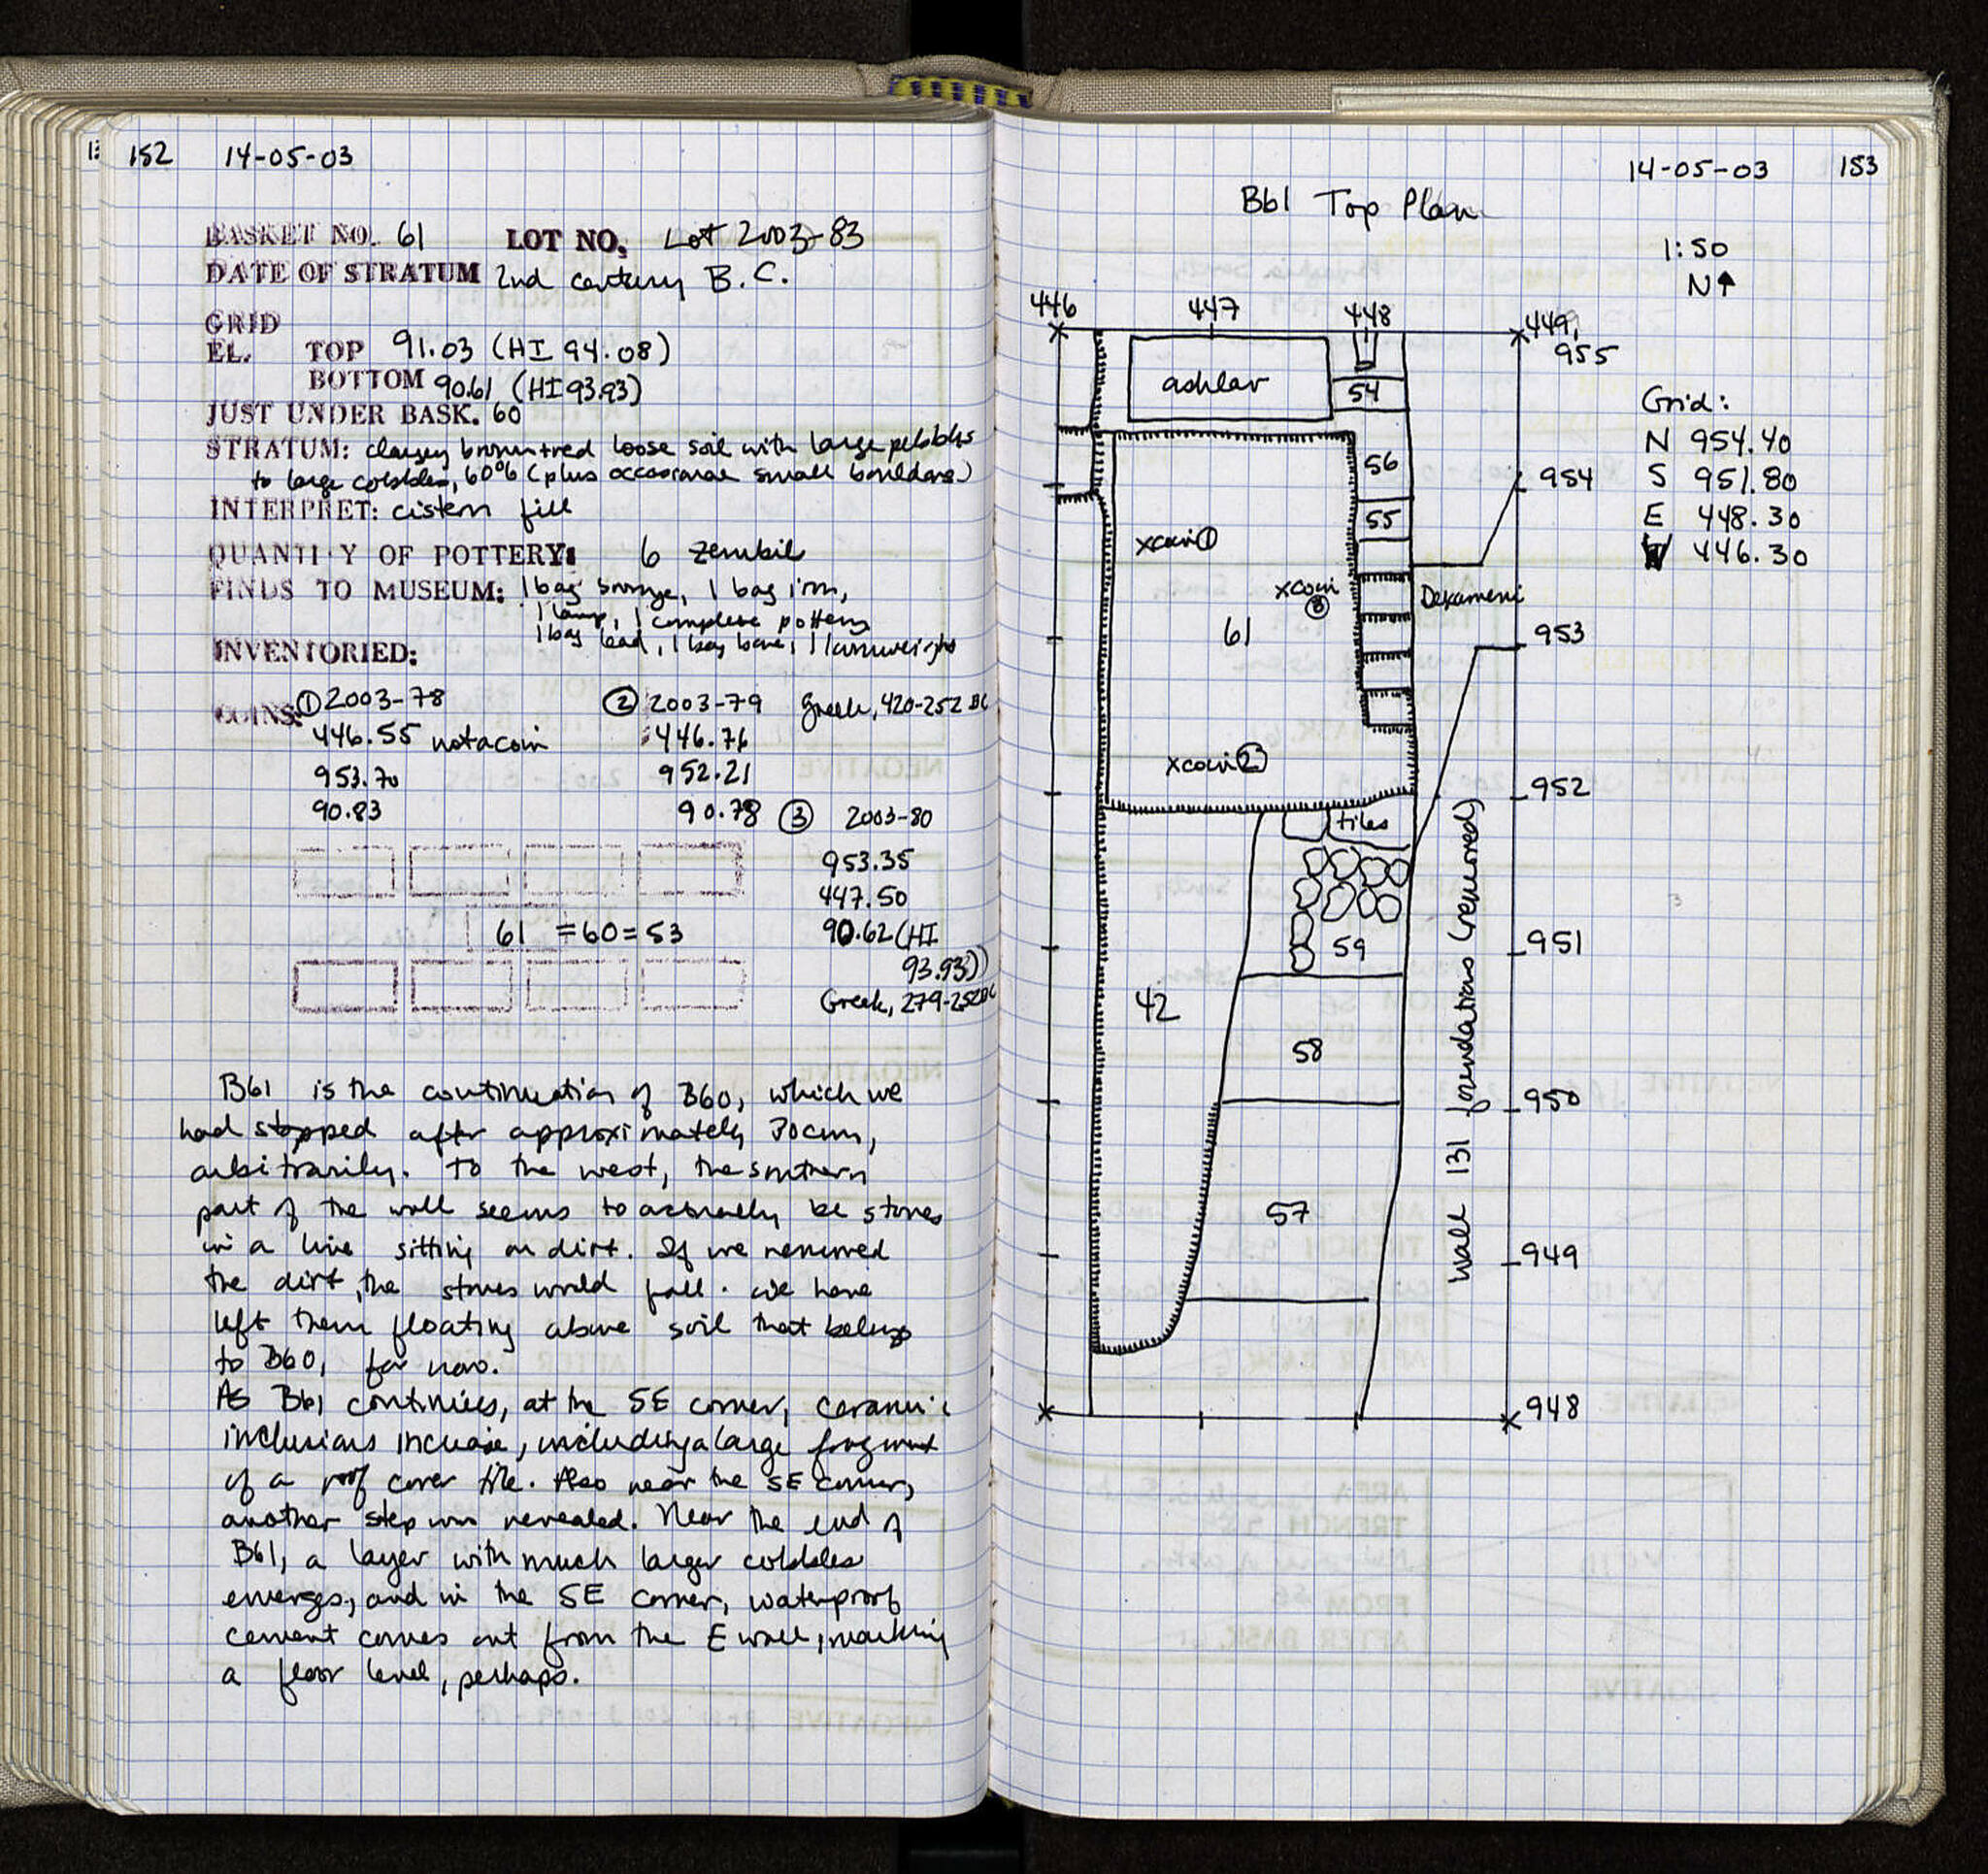 152 14-05-03
BASKET NO. 61 LOT NO. Lot 2003-83
DATE OF STRATUM 2nd century B.C.
GRID
EL. TOP 91.03 (HI 94.08)
BOTTOM 90.61 (HI 93.93)
JUST UNDER BASK. 60
STRATUM: clayey brown+red loose soil with large pebbles
to large cobbles, 60% (plus occasional small boulders)
INTERPRET: cistern fill
QUANTITY OF POTTERY: 6 zembil
FINDS TO MUSEUM: 1 bag bronze, 1 bag iron,
1 lamp, 1 complete pottery
1 bag lead, 1 bag bone, 1 loomweight
INVENTORIED:
COINS: ① 2003-78 ② 2003-79 Greek, 420-252 BC
446.55 not a coin 446.76
953.70 952.21
90.83 90.78 ③ 2003-80
953.35
447.50
61 =60=53 90.62 (HI
93.93)
Greek, 279-252 BC
B61 is the continuation of B60, which we
had stopped after approximately 30cm,
arbitrarily. To the west, the southern
part of the wall seems to actually be stones
in a line sitting on dirt. If we removed
the dirt, the stones would fall. We have
left them floating above soil that belongs
to B60, for now.
As B61 continues, at the SE corner, ceramic
inclusions increase, including a large fragment
of a roof cover tile. Also near the SE corner,
another step was revealed. Near the end of
B61, a layer with much larger cobbles
emerges, and in the SE corner, waterproof
cement comes out from the E wall, marking
a floor level, perhaps.
14-05-03 153
B61 Top Plan
1:50
N↑
446 447 448 449,
955
ashlar
54
Grid:
N 954.40
S 951.80
E 448.30
W 446.30
56
954
55
xcoin①
xcoin
③
Dexameni
61
953
xcoin②
952
tiles
59
951
42
58
950
Wall 131 foundations (removed)
57
949
948